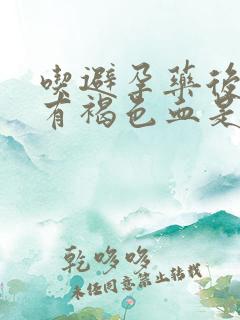 喫避孕藥後
有褐色血是
乾哆哆
未任同意禁止转载